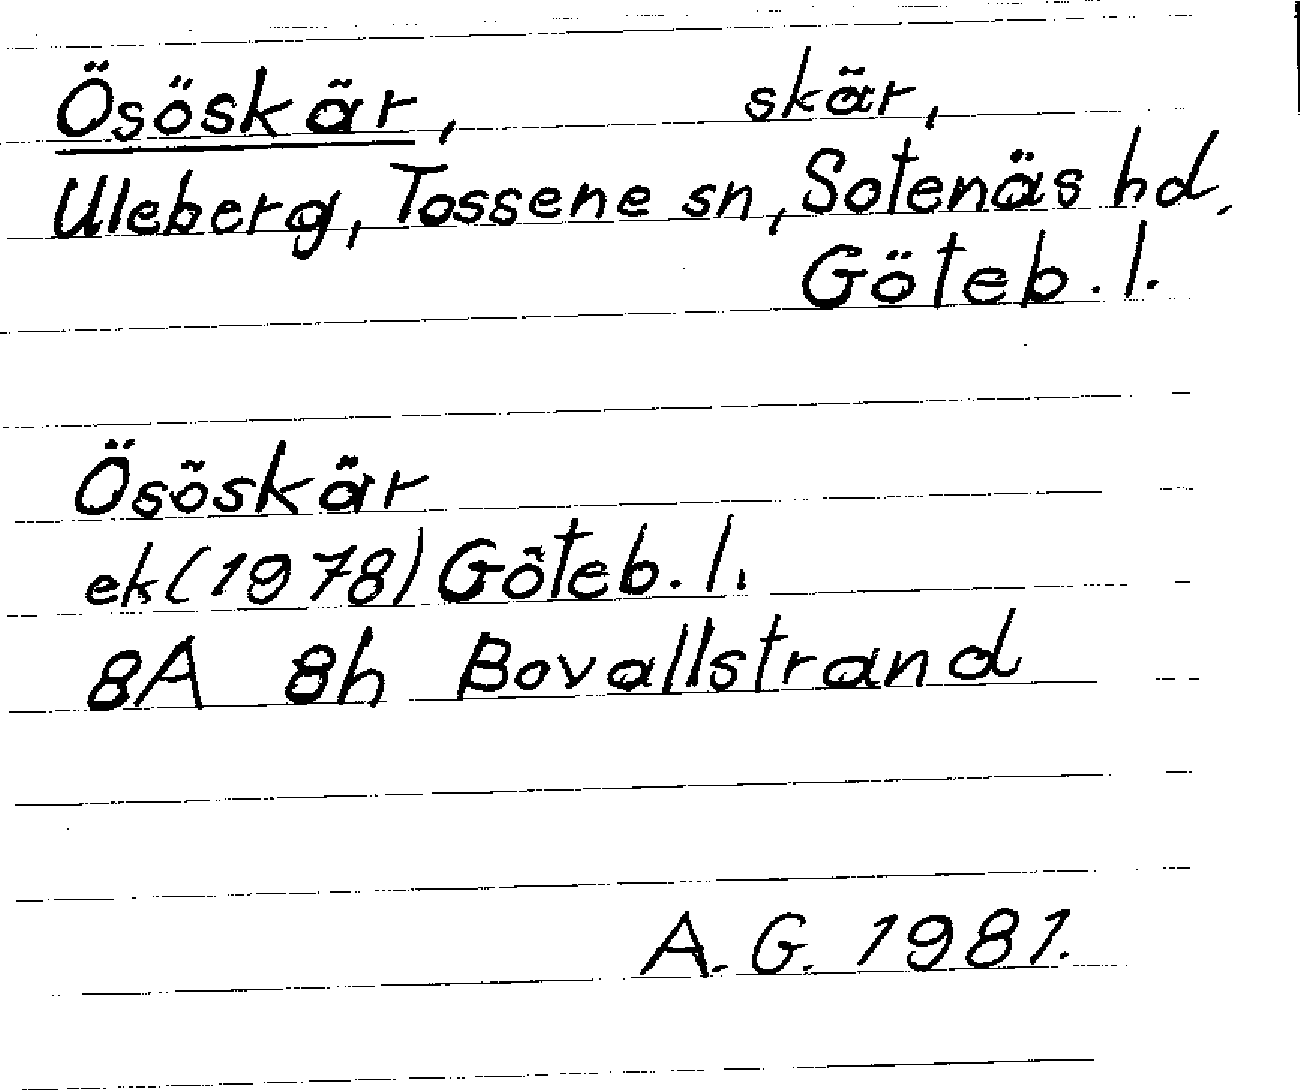 Ösöskär, skär,
Uleberg, Tossene sn, Sotenäs hd,
Göteb. l.
Ösöskär
ek (1978) Göteb. l.
8A 8h Bovallstrand
A. G. 1981.